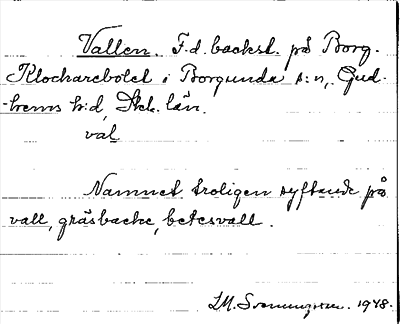 Vallen. F.d. backst. på Borg.
Klockarebolet i Borgunda s:n, Gud-
hems h:d, Skb. län.
val
Namnet troligen syftande på
vall, gräsbacke, betesvall.
1948.